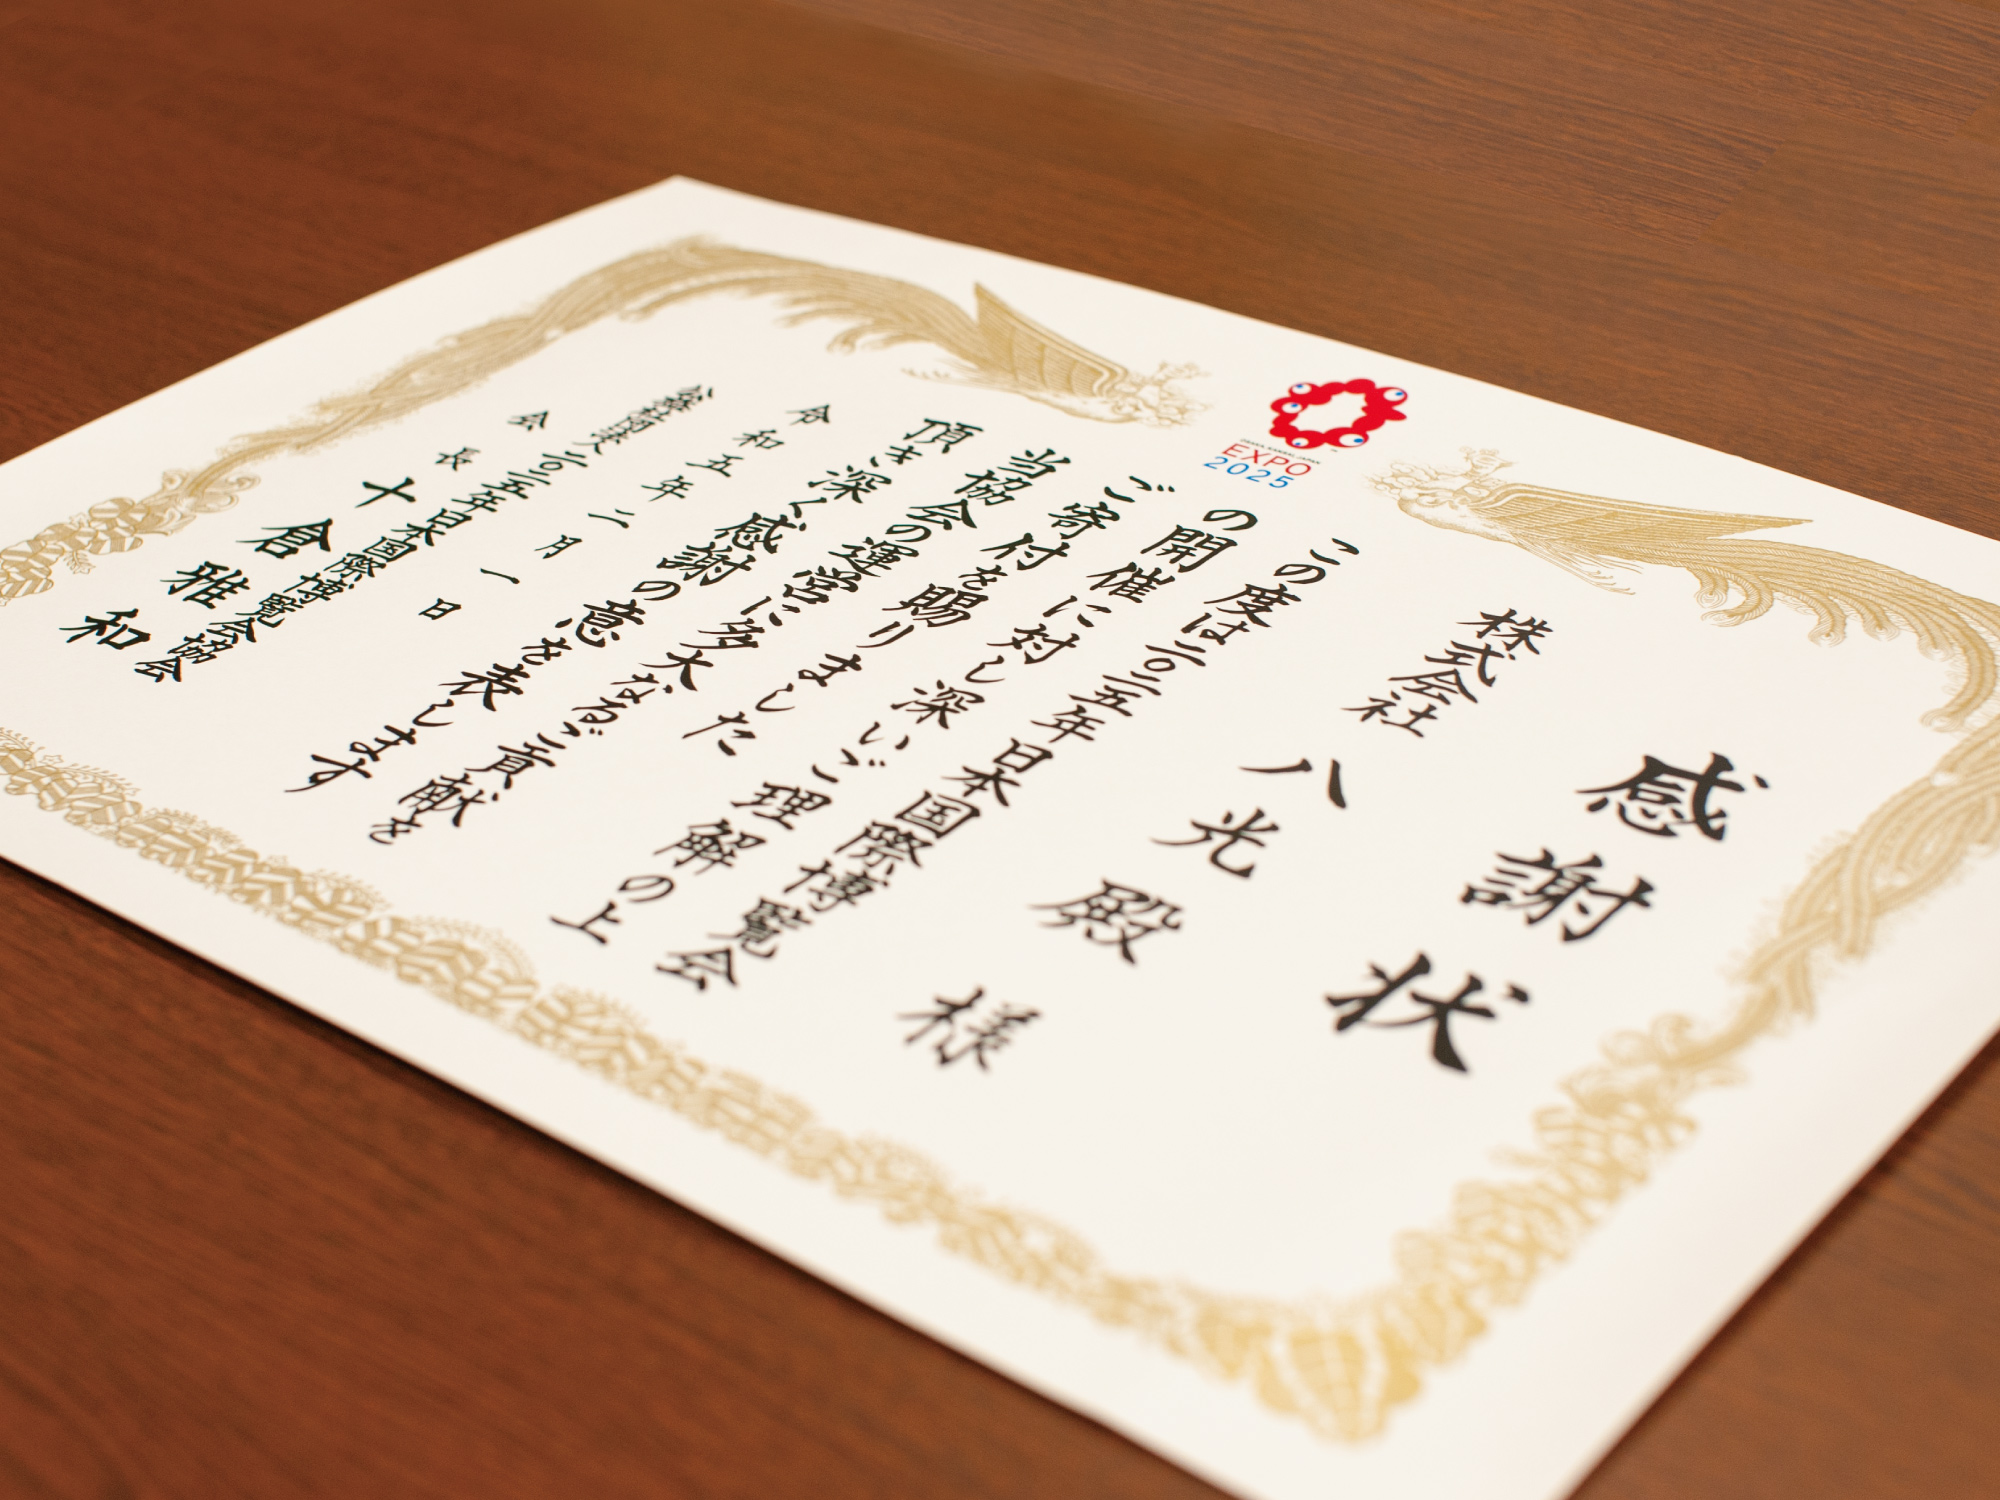 感謝状
株式会社 八光殿 様
この度は二〇二五年日本国際博覧会
の開催に対し深いご理解の上
ご寄付を賜りました
当協会の運営に多大なるご貢献を
頂き深く感謝の意を表します
令和五年二月一日
公益社団法人 二〇二五年日本国際博覧会協会
会長 十倉雅和
OSAKA, KANSAI, JAPAN
EXPO
2025